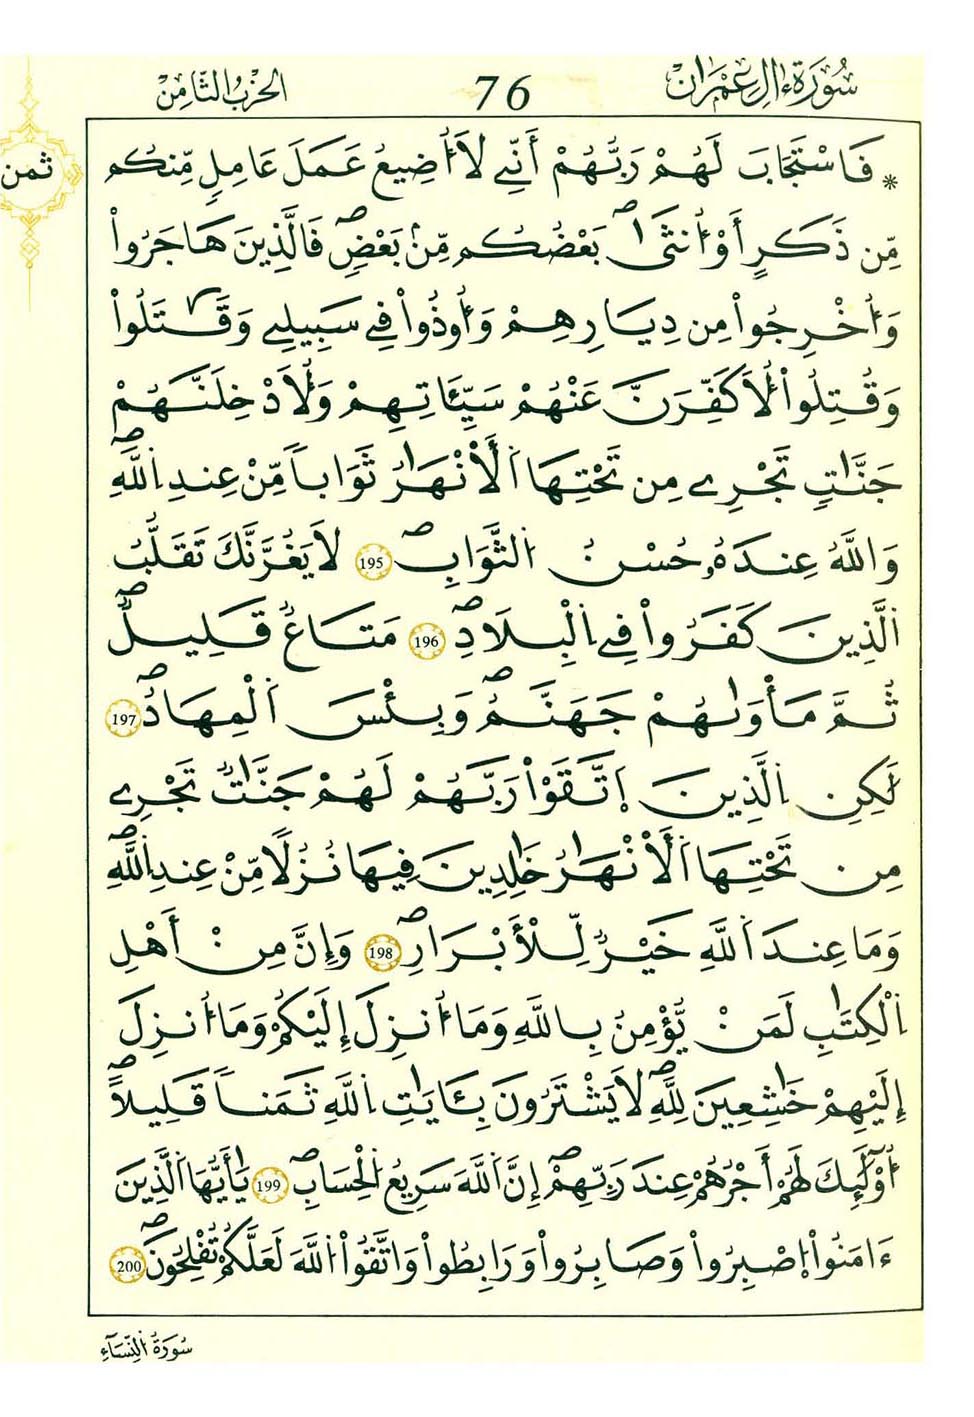 سُورَةُ ءَالِ عِمْرَانَ
76
الحِزْبُ الثَّامِنُ
ثمن
* فَاسْتَجَابَ لَهُمْ رَبُّهُمْ أَنِّے لَا أُضِيعُ عَمَلَ عَامِلٍ مِّنكُم
مِّن ذَكَرٍ أَوْ أُنثَىٰ بَعْضُكُم مِّنۢ بَعْضٍ فَالَّذِينَ هَاجَرُواْ
وَأُخْرِجُواْ مِن دِيَارِهِمْ وَأُوذُواْ فِے سَبِيلِے وَقَٰتَلُواْ
وَقُتِلُواْ لَأُكَفِّرَنَّ عَنْهُمْ سَيِّـَٔاتِهِمْ وَلَأُدْخِلَنَّهُمْ
جَنَّٰتٍ تَجْرِے مِن تَحْتِهَا اَ۬لْأَنْهَٰرُ ثَوَاباً مِّنْ عِندِ اِ۬للَّهِ
وَاللَّهُ عِندَهُۥ حُسْنُ اُ۬لثَّوَابِ 195 لَا يَغُرَّنَّكَ تَقَلُّبُ
اُ۬لَّذِينَ كَفَرُواْ فِے اِ۬لْبِلَادِ 196 مَتَاعٌ قَلِيلٌ
ثُمَّ مَأْوَىٰهُمْ جَهَنَّمُ وَبِئْسَ اَ۬لْمِهَادُ 197
لَكِنِ اِ۬لَّذِينَ اَ۪تَّقَوْاْ رَبَّهُمْ لَهُمْ جَنَّٰتٌ تَجْرِے
مِن تَحْتِهَا اَ۬لْأَنْهَٰرُ خَٰلِدِينَ فِيهَا نُزُلًا مِّنْ عِندِ اِ۬للَّهِ
وَمَا عِندَ اَ۬للَّهِ خَيْرٌ لِّلْأَبْرَارِ 198 وَإِنَّ مِنْ أَهْلِ
اِ۬لْكِتَٰبِ لَمَنْ يُّؤْمِنُ بِاللَّهِ وَمَا أُنزِلَ إِلَيْكُمْ وَمَا أُنزِلَ
إِلَيْهِمْ خَٰشِعِينَ لِلَّهِ لَا يَشْتَرُونَ بِـَٔايَٰتِ اِ۬للَّهِ ثَمَناً قَلِيلًا
أُوْلَٰٓئِكَ لَهُمْ أَجْرُهُمْ عِندَ رَبِّهِمْ إِنَّ اَ۬للَّهَ سَرِيعُ اُ۬لْحِسَابِ 199 يَٰأَيُّهَا اَ۬لَّذِينَ
ءَامَنُواْ اُ۪صْبِرُواْ وَصَابِرُواْ وَرَابِطُواْ وَاتَّقُواْ اُ۬للَّهَ لَعَلَّكُمْ تُفْلِحُونَ 200
سُورَةُ اُ۬لنِّسَآءِ